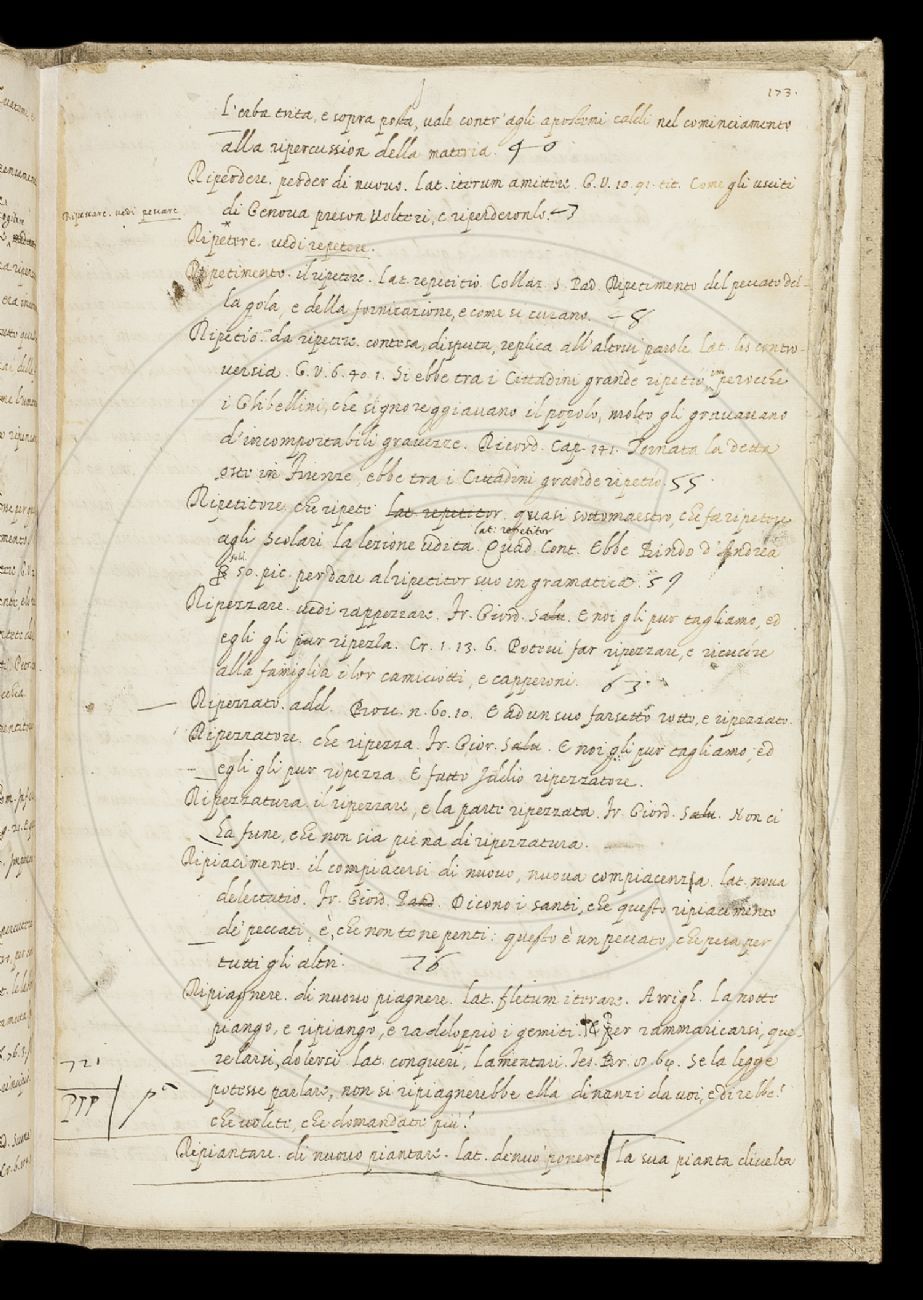 173.
L'erba trita, e sopra posta, vale contr'agli apostemi caldi nel cominciamento
alla ripercussion della materia. 40
Riperdere. perder di nuovo. Lat. iterum amittere. G.V. 10. 91. tit. Come gli usciti
Ripescare. vedi pescare.
di Genova preson Volteri, e riperderonlo.
Ripetere. vedi repetere.
Ripetimento. il ripetere. Lat. repetitio. Collaz. S. Pad. Ripetimento del peccato del-
la gola, e della fornicazione, e come si curano. 48
Ripetio. da ripetere. contesa, disputa, replica all'altrui parole. Lat. lis contro-
versia. G.V. 6. 40. 1. Si ebbe tra i Cittadini grande ripetio, perocche
i Ghibellini, che signoreggiavano il popolo, molto gli gravavano
d'incomportabili gravezze. Ricord. Cap. 141. Tornata la detta
oste in Firenze, ebbe tra i Cittadini grande ripetio. 55
Ripetitore. che ripete. Lat. repetitor. quasi sottomaestro, che fa ripetere
lat: repetitor
agli Scolari la lezione udita. Quad. Cont. Ebbe Bindo d'Andrea
50. pic. per dare al ripetitor suo in gramatica. 59
Ripezzare. vedi rappezzare. Fr. Giord. Salv. E noi gli pur tagliamo, ed
egli gli pur ripezza. Cr. 1. 13. 6. Potevi far ripezzare, e ricucire
alla famiglia i lor camiciotti, e capperoni. 63.
Ripezzato. add. Bocc. n. 60. 10. E ad un suo farsetto rotto, e ripezzato.
Ripezzatore. che ripezza. Fr. Gior. Salv. E noi gli pur tagliamo, ed
egli gli pur ripezza. È fatto Iddio ripezzatore.
Ripezzatura. il ripezzare, e la parte ripezzata. Fr. Giord. Salv. Non ci
ha fune, che non sia piena di ripezzatura.
Ripiacimento. il compiacersi di nuovo, nuova compiacenza. Lat. nova
delectatio. Fr. Giord. Pred. Dicono i santi, che questo ripiacimento
de' peccati, è, che non te ne penti: questo è un peccato, che pesa per
tutti gli altri. 76
Ripiagnere. di nuovo piagnere. Lat. fletum iterare. Arrigh. La notte
piango, e ripiango, e raddoppio i gemiti. per rammaricarsi, que-
relarsi, dolersi. Lat. conqueri, lamentari. Tes. Br. 8. 64. Se la legge
721
potesse parlare, non si ripiagnerebbe ella dinanzi da voi, e direbbe!
che volete, che domandate più!
Ripiantare. di nuovo piantare. Lat. denuo ponere. La sua pianta divelta